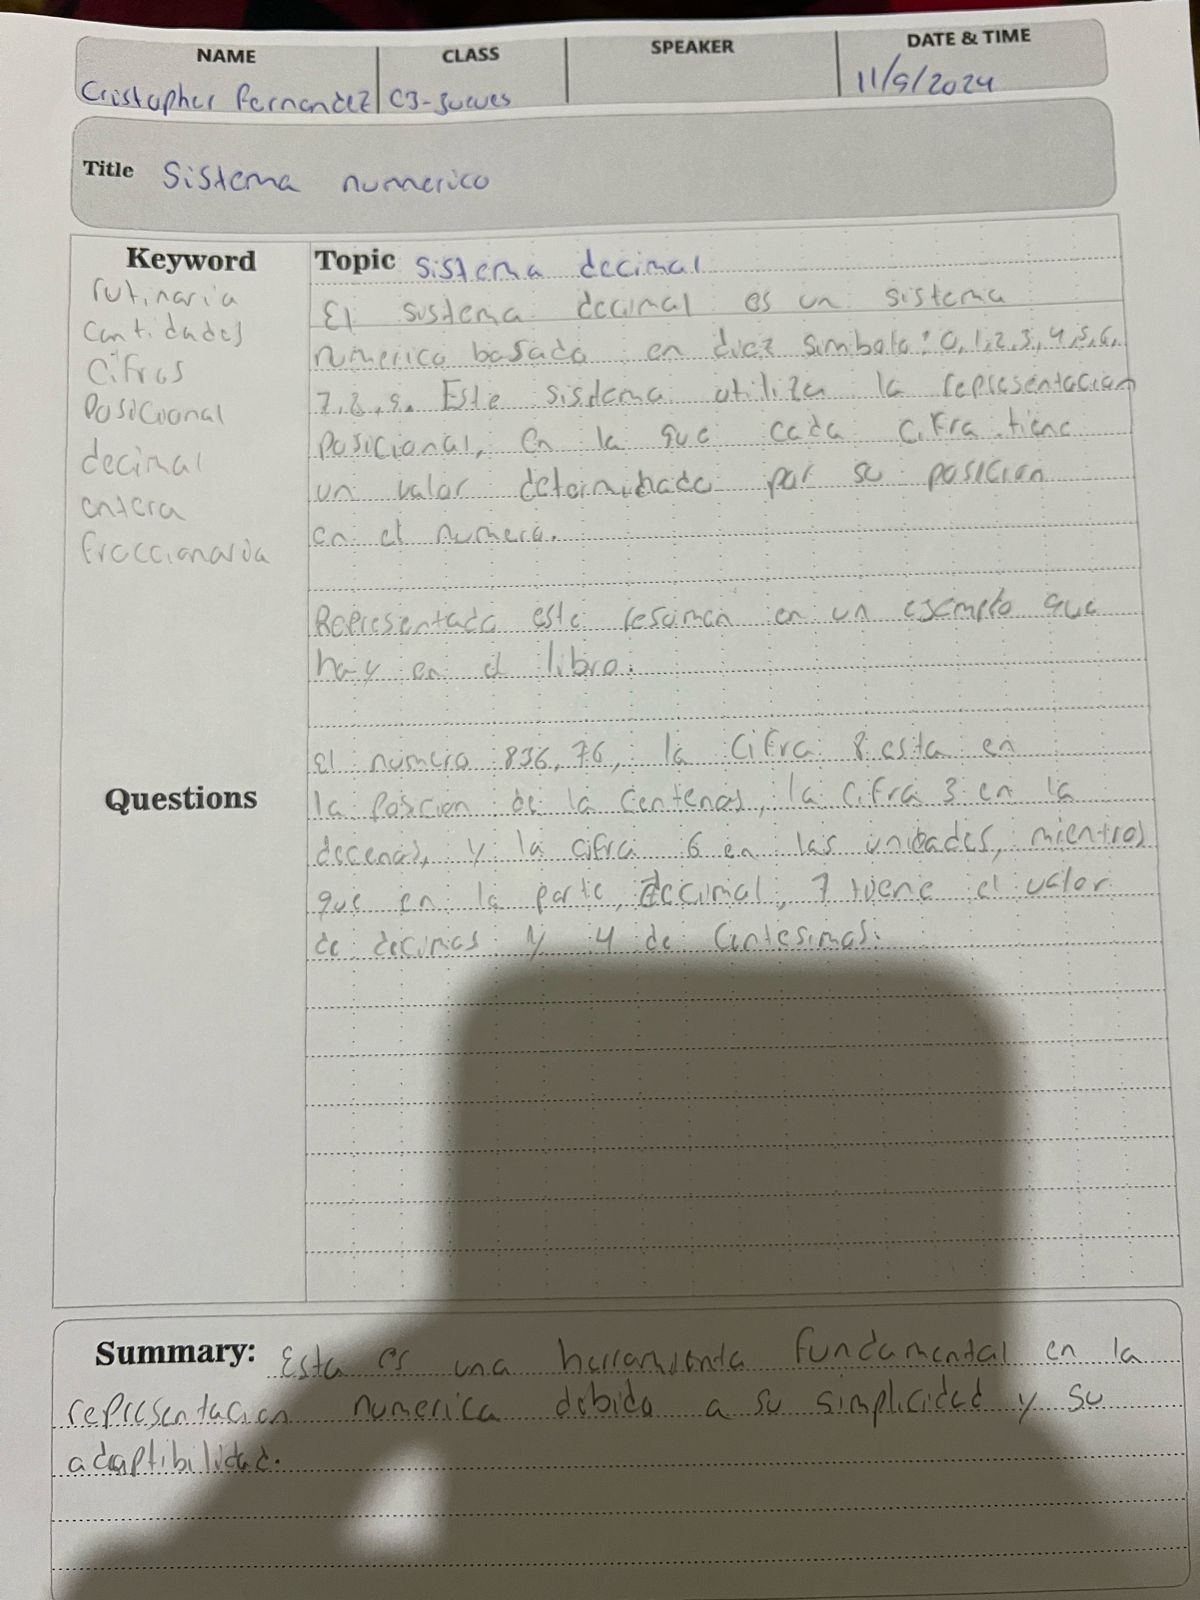 NAME CLASS SPEAKER DATE & TIME
Cristopher Fernandez C3-Jueves 11/9/2024
Title Sistema numerico
Keyword
rutinaria
cantidades
Cifras
Posicional
decimal
entera
fraccionaria
Questions
Topic sistema decimal
El sistema decimal es un sistema
numerico basado en diez simbolo: 0,1,2,3,4,5,6,
7,8,9. Este sistema utiliza la representacion
posicional, en la que cada cifra tiene
un valor determinado por su posicion
en el numero.
Representado este resumen en un ejemplo que
hay en el libro.
El numero 836,76, la cifra 8 esta en
la posicion de la centenas, la cifra 3 en la
decenas, y la cifra 6 en las unidades, mientras
que en la parte decimal, 7 tiene el valor
de decimas y 4 de centesimas.
Summary: Esta es una herramienta fundamental en la
representacion numerica debido a su simplicidad y su
adaptibilidad.